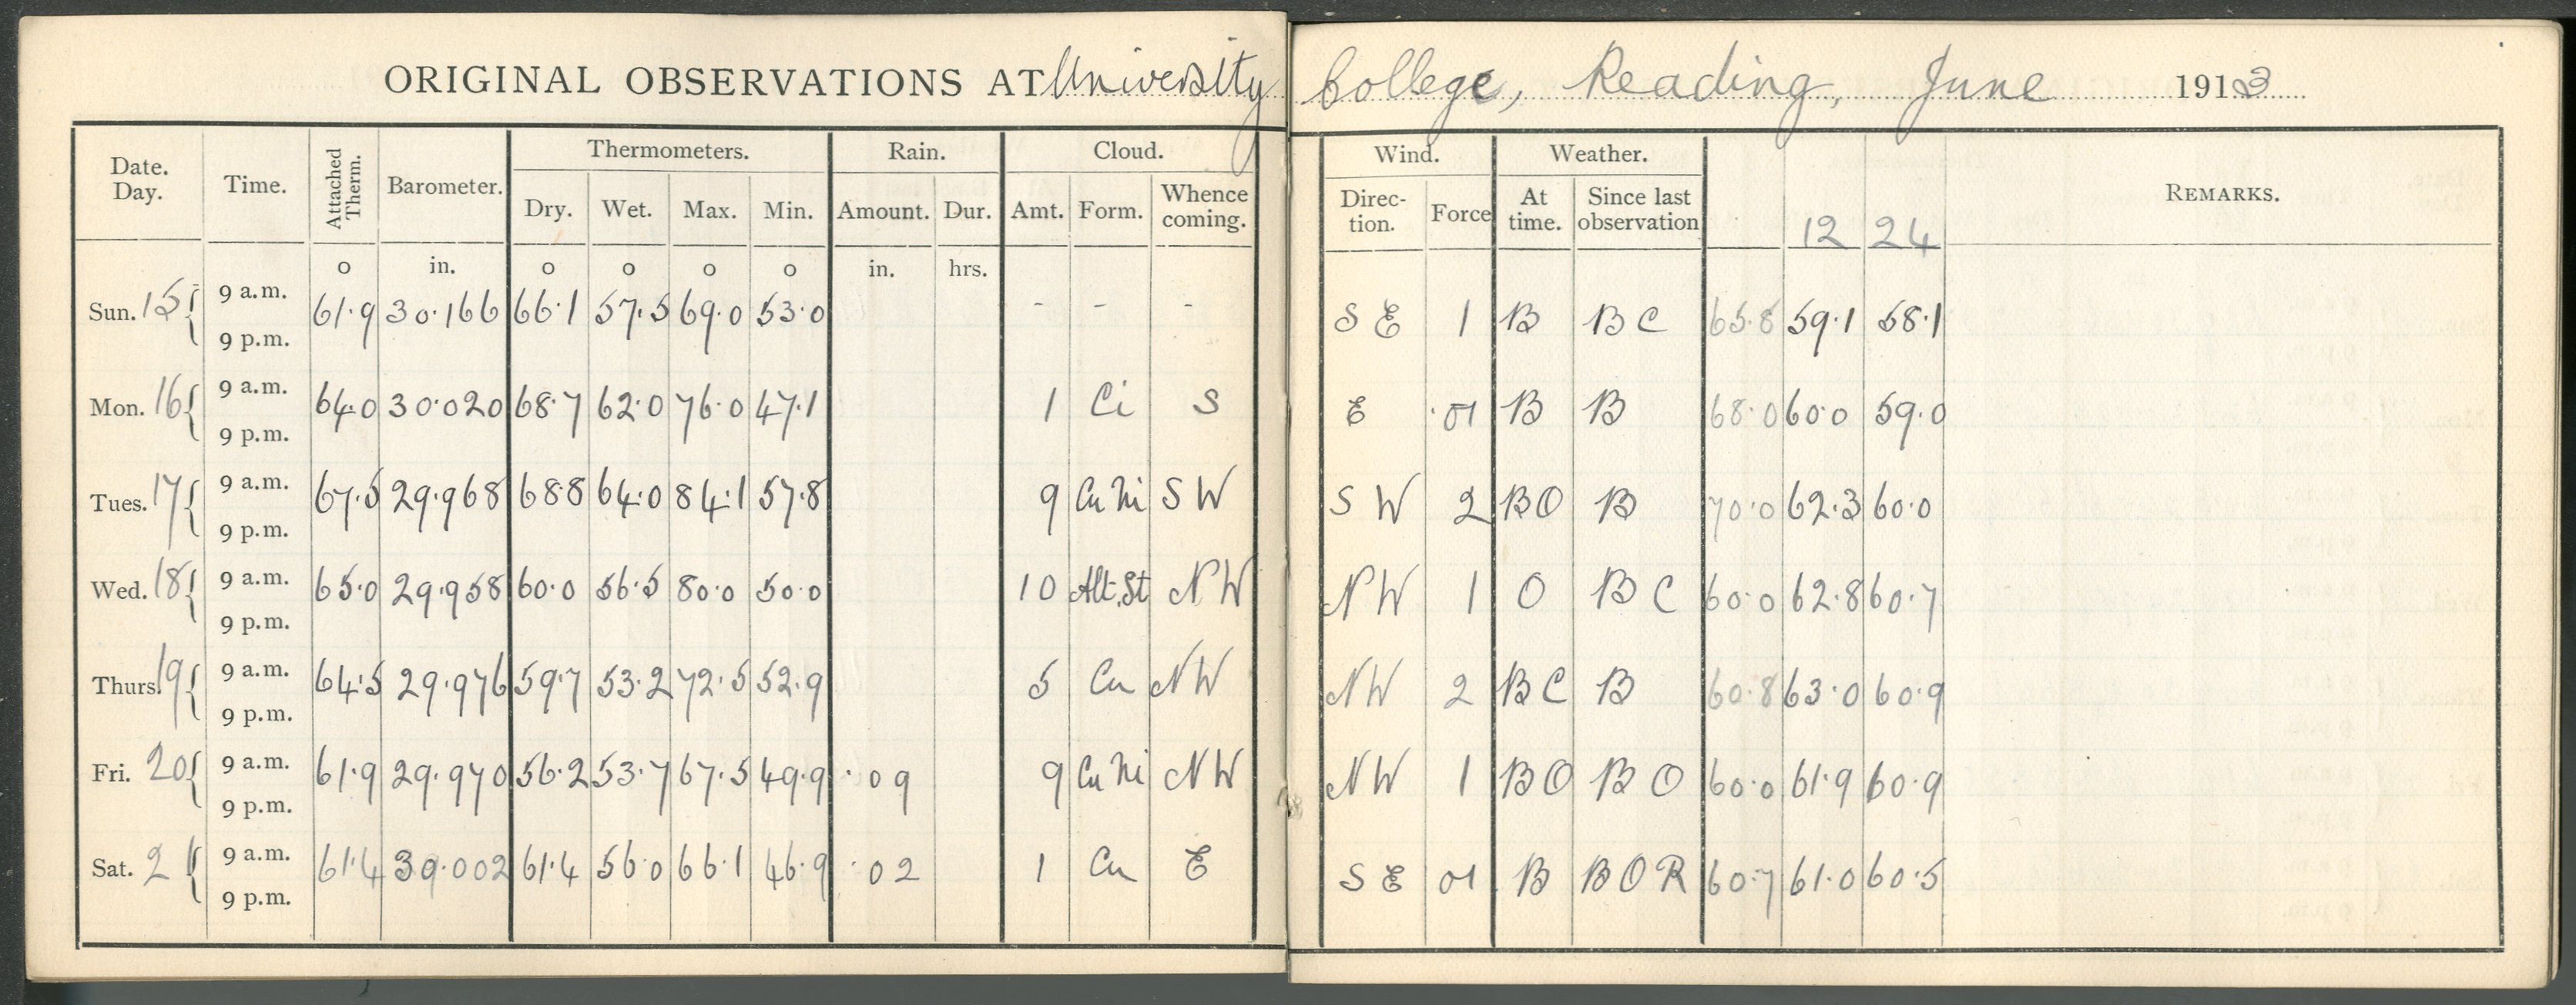 ORIGINAL OBSERVATIONS AT University College, Reading, June 1913
Date. Day. Time. Attached Therm. Barometer. Thermometers. Rain. Cloud. Wind. Weather. REMARKS.
Dry. Wet. Max. Min. Amount. Dur. Amt. Form. Whence coming. Direc- tion. Force At time. Since last observation 12 24
o in. o o o o in. hrs.
Sun. 15 { 9 a.m. 61.9 30.166 66.1 57.5 69.0 53.0 - - - S E 1 B B C 65.8 59.1 58.1
9 p.m.
Mon. 16 { 9 a.m. 64.0 30.020 68.7 62.0 76.0 47.1 1 Ci S E .01 B B 68.0 60.0 59.0
9 p.m.
Tues. 17 { 9 a.m. 67.5 29.968 68.8 64.0 84.1 57.8 9 Cu Ni S W S W 2 B O B 70.0 62.3 60.0
9 p.m.
Wed. 18 { 9 a.m. 65.0 29.958 60.0 56.5 80.0 50.0 10 Alt.St N W N W 1 O B C 60.0 62.8 60.7
9 p.m.
Thurs. 19 { 9 a.m. 64.5 29.976 59.7 53.2 72.5 52.9 5 Cu N W N W 2 B C B 60.8 63.0 60.9
9 p.m.
Fri. 20 { 9 a.m. 61.9 29.970 56.2 53.7 67.5 49.9 .09 9 Cu Ni N W N W 1 B O B O 60.0 61.9 60.9
9 p.m.
Sat. 21 { 9 a.m. 61.4 30.002 61.4 56.0 66.1 46.9 .02 1 Cu E S E 01 B B O R 60.7 61.0 60.5
9 p.m.